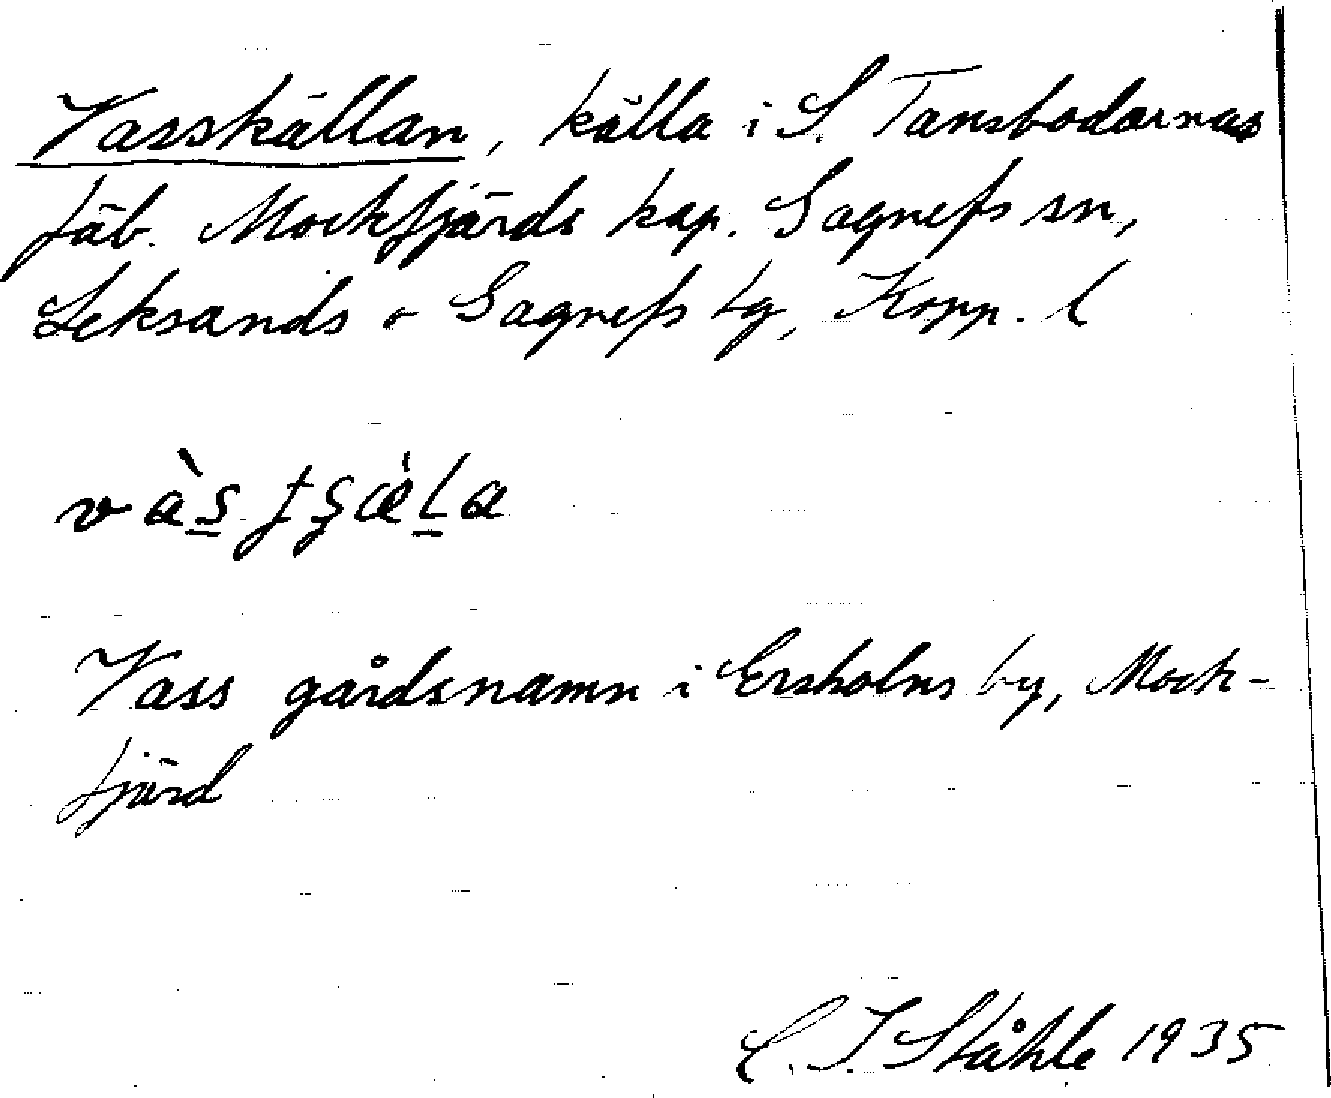 Vasskällan, källa i S. Tansbodarnas
fäb. Mockfjärds kap. Gagnefs sn,
Leksands o Gagnefs tg, Kopp. l
vàs̠ tʂæ̀l̠a
Vass gårdsnamn i Ersholns by, Mock-
fjärd
C. I. Ståhle 1935